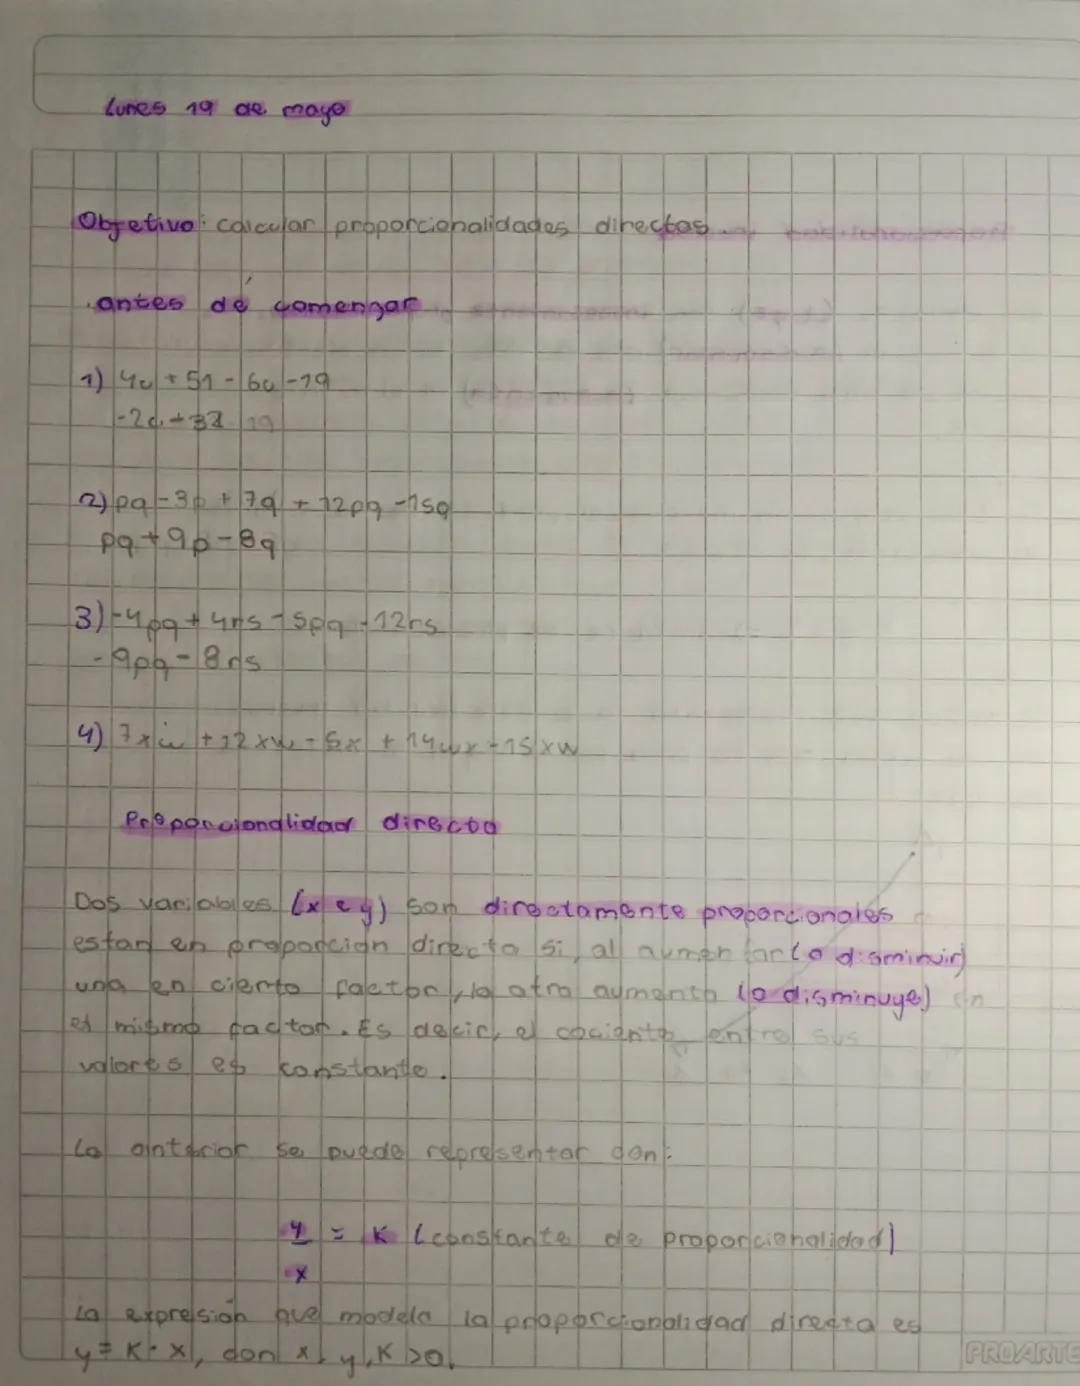 lunes 19 de mayo
Objetivo: calcular proporcionalidades directas.
antes de comenzar
1) 4u + 51 - 6u - 19
-2u + 32
2) pq - 3p + 7q + 12pq - 15q
pq + 9p - 8q
3) -4pq + 4rs - 5pq - 12rs
-9pq - 8rs
4) 7xw + 12xw - 5x + 14wx - 15xw
Proporcionalidad directa
Dos variables (x e y) son directamente proporcionales o
estan en proporcion directa si, al aumentar (o disminuir)
una en cierto factor, la otra aumenta (o disminuye) en
el mismo factor. Es decir, el cociente entre sus
valores es constante.
Lo anterior se puede representar con:
y = K (constante de proporcionalidad)
x
La expresión que modela la proporcionalidad directa es
y = K · x, con x, y, K >0.
PROARTE